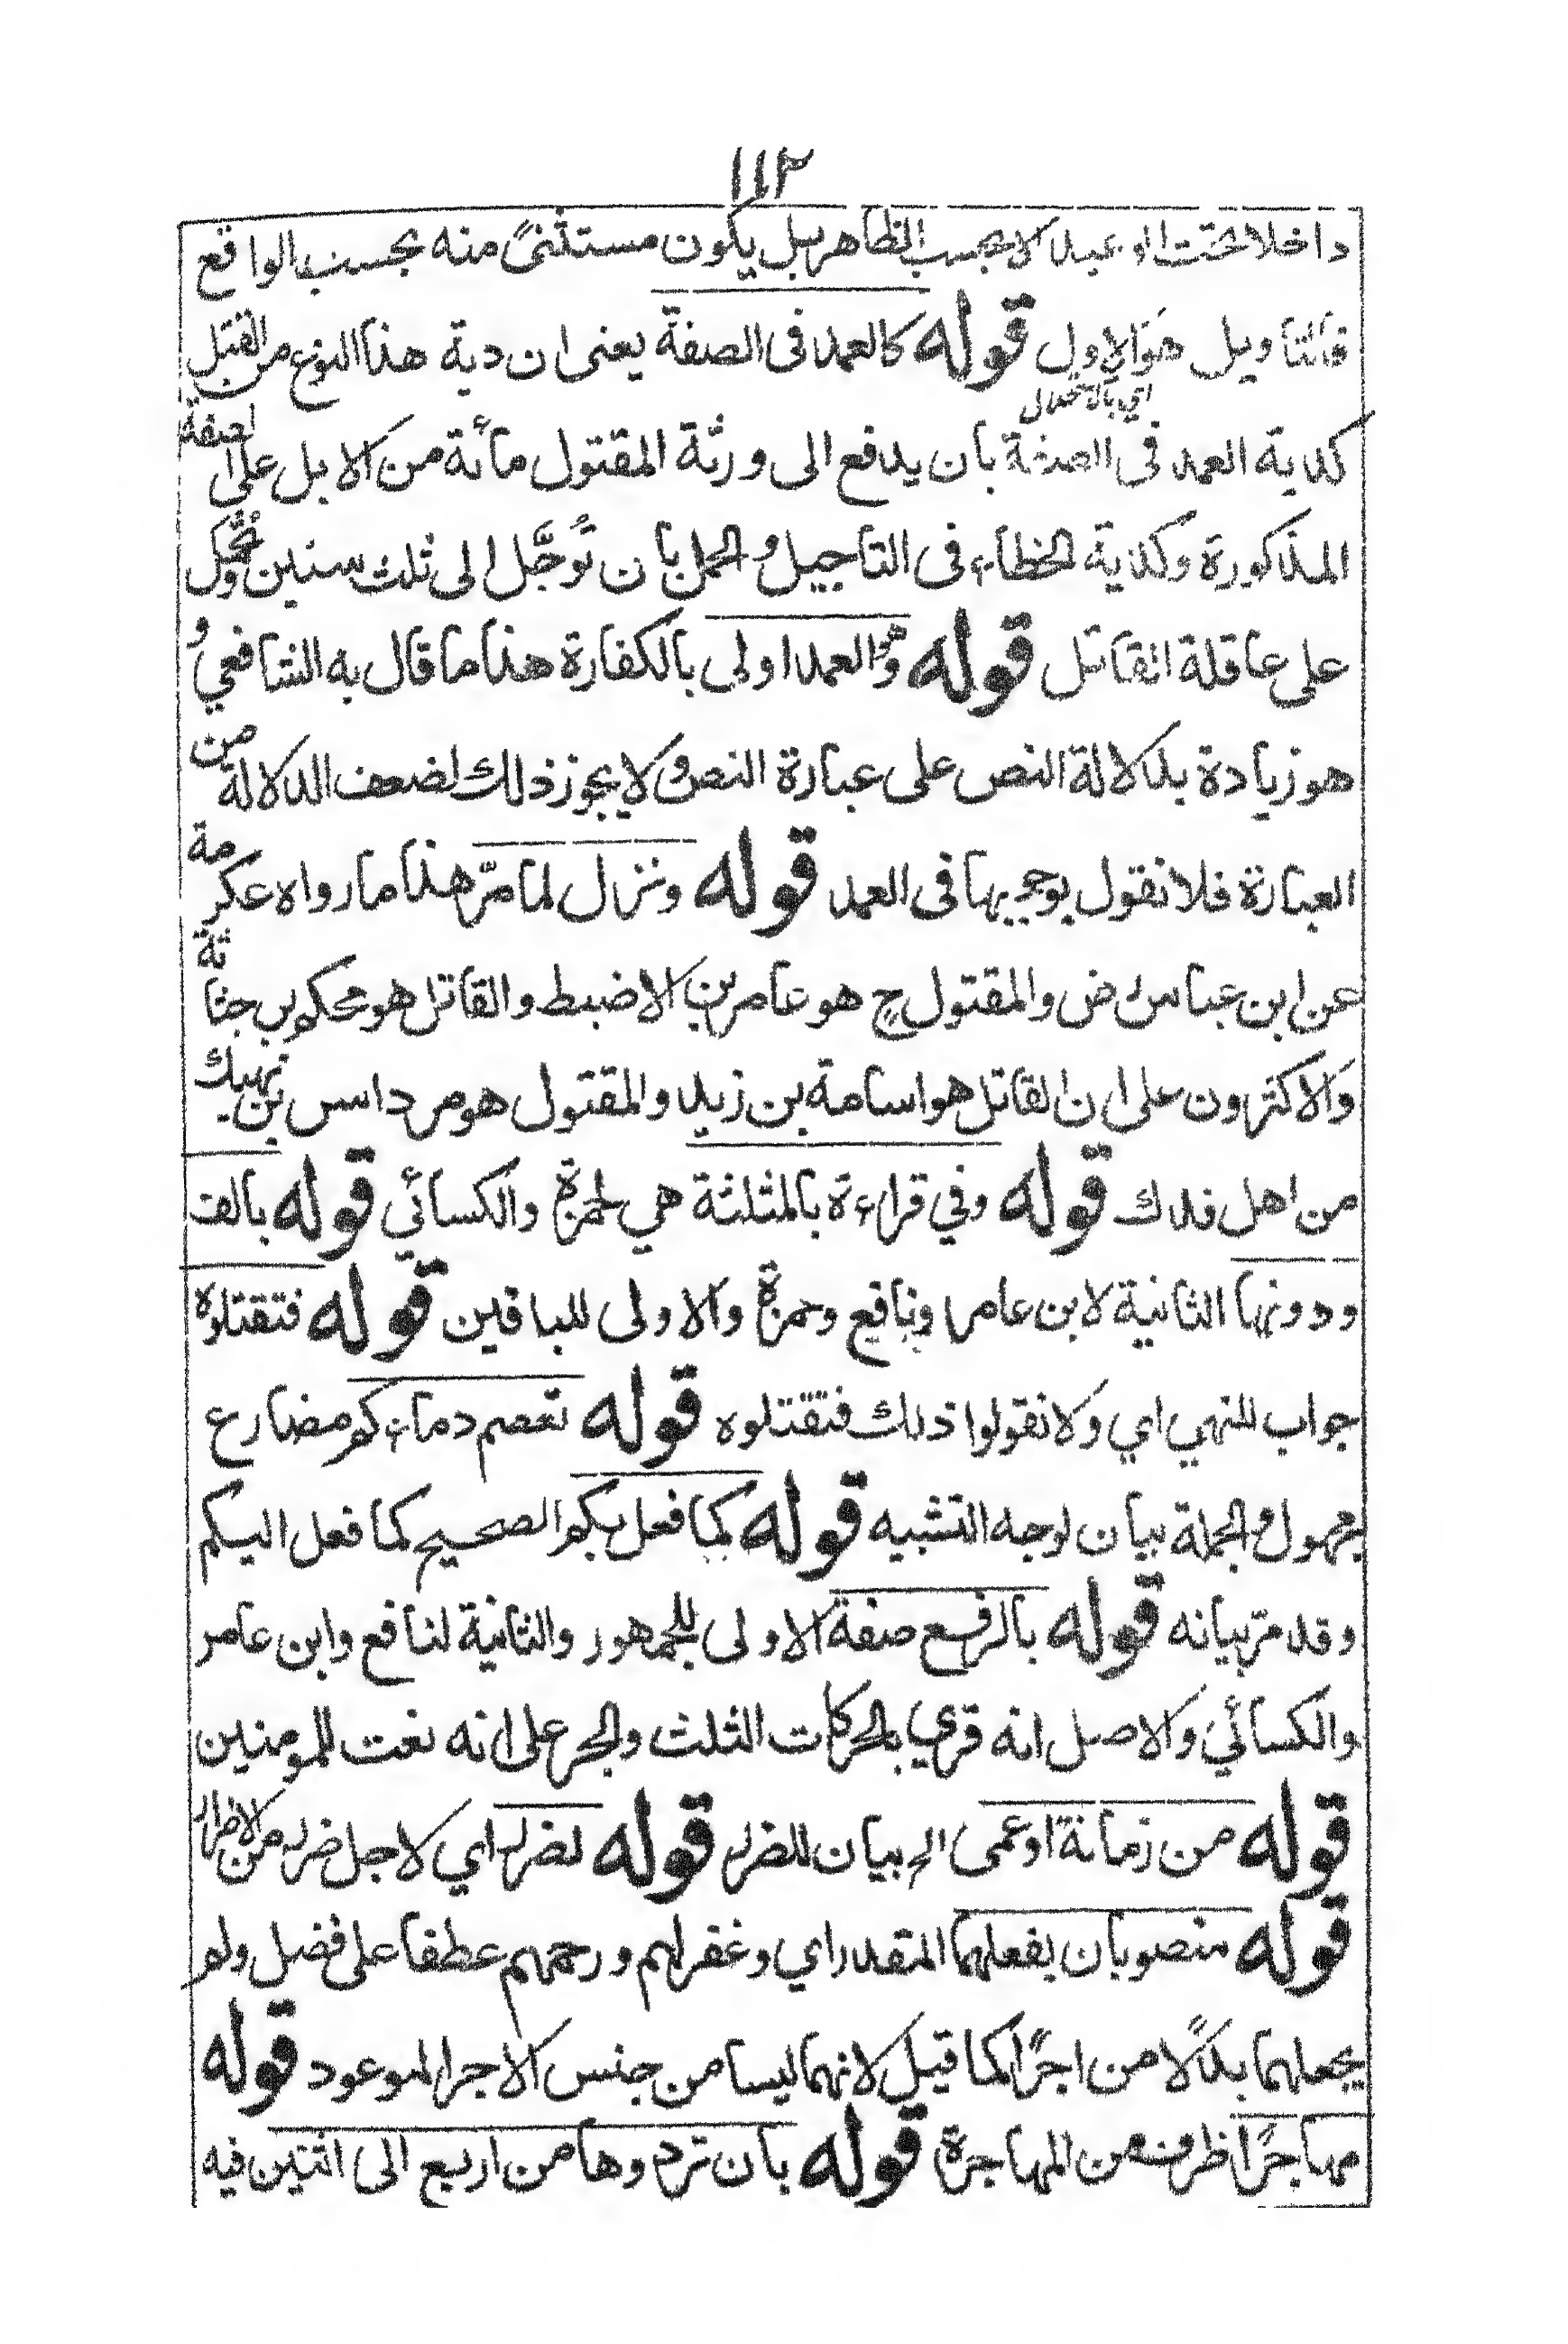 ١١٢
داخلا تحت الوعيد لا بحسب الظاهر بل يكون مستثنىً منه بحسب الواقع
فالتاويل هو الاول قوله كالعمد فى الصفة يعنى ان دية هذا النوع من القتل
اي بالاتصال
كدية العمد فى الصفة بان يدفع الى ورثة المقتول مائة من الابل على الصفة
المذكورة وكدية الخطاء فى التاجيل والحمل بان تُوجَّل الى ثلث سنين وتحمل
على عاقلة القاتل قوله وهو العمد اولى بالكفارة هذا ما قال به الشافعي و
هو زيادة بدلالة النص على عبارة النص ولا يجوز ذلك لضعف الدلالة من
العبارة فلا نقول بوجوبها فى العمد قوله ونزل لما مرّ هذا ما رواه عكرمة
عن ابن عباس رض والمقتول ح هو عامر بن الاضبط والقاتل هو محكم بن جثامة
والاكثرون على ان القاتل هو اسامة بن زيد والمقتول هو مرداس بن نهيك
من اهل فدك قوله وفي قراءة بالمثلثة هي لحمزة والكسائي قوله بالف
ودونها الثانية لابن عامر ونافع وحمزة والاولى للباقين قوله فتقتلوه
جواب للنهي اي ولا نقولوا ذلك فتقتلوه قوله تعصم دماءكم مضارع
مجهول والجملة بيان لوجه التشبيه قوله كما فعل بكم الصحيح كما فعل اليكم
وقد مرّ بيانه قوله بالرفع صفة الاولى للجمهور والثانية لنافع وابن عامر
والكسائي والاصل انه قري بالحركات الثلث والجر على انه نعت للمومنين
قوله من زمانة او عمى الخ بيان للضرر قوله لضرر اي لاجل ضرر من الاضرار
قوله منصوبان بفعلهما المقدر اي وغفر لهم ورحمهم عطفا على فضل ولم
يجعلهما بدلًا من اجرًا كما قيل لانهما ليسا من جنس الاجر الموعود قوله
مهاجرًا ظرف من المهاجرة قوله بان تردوها من اربع الى اثنتين فيه